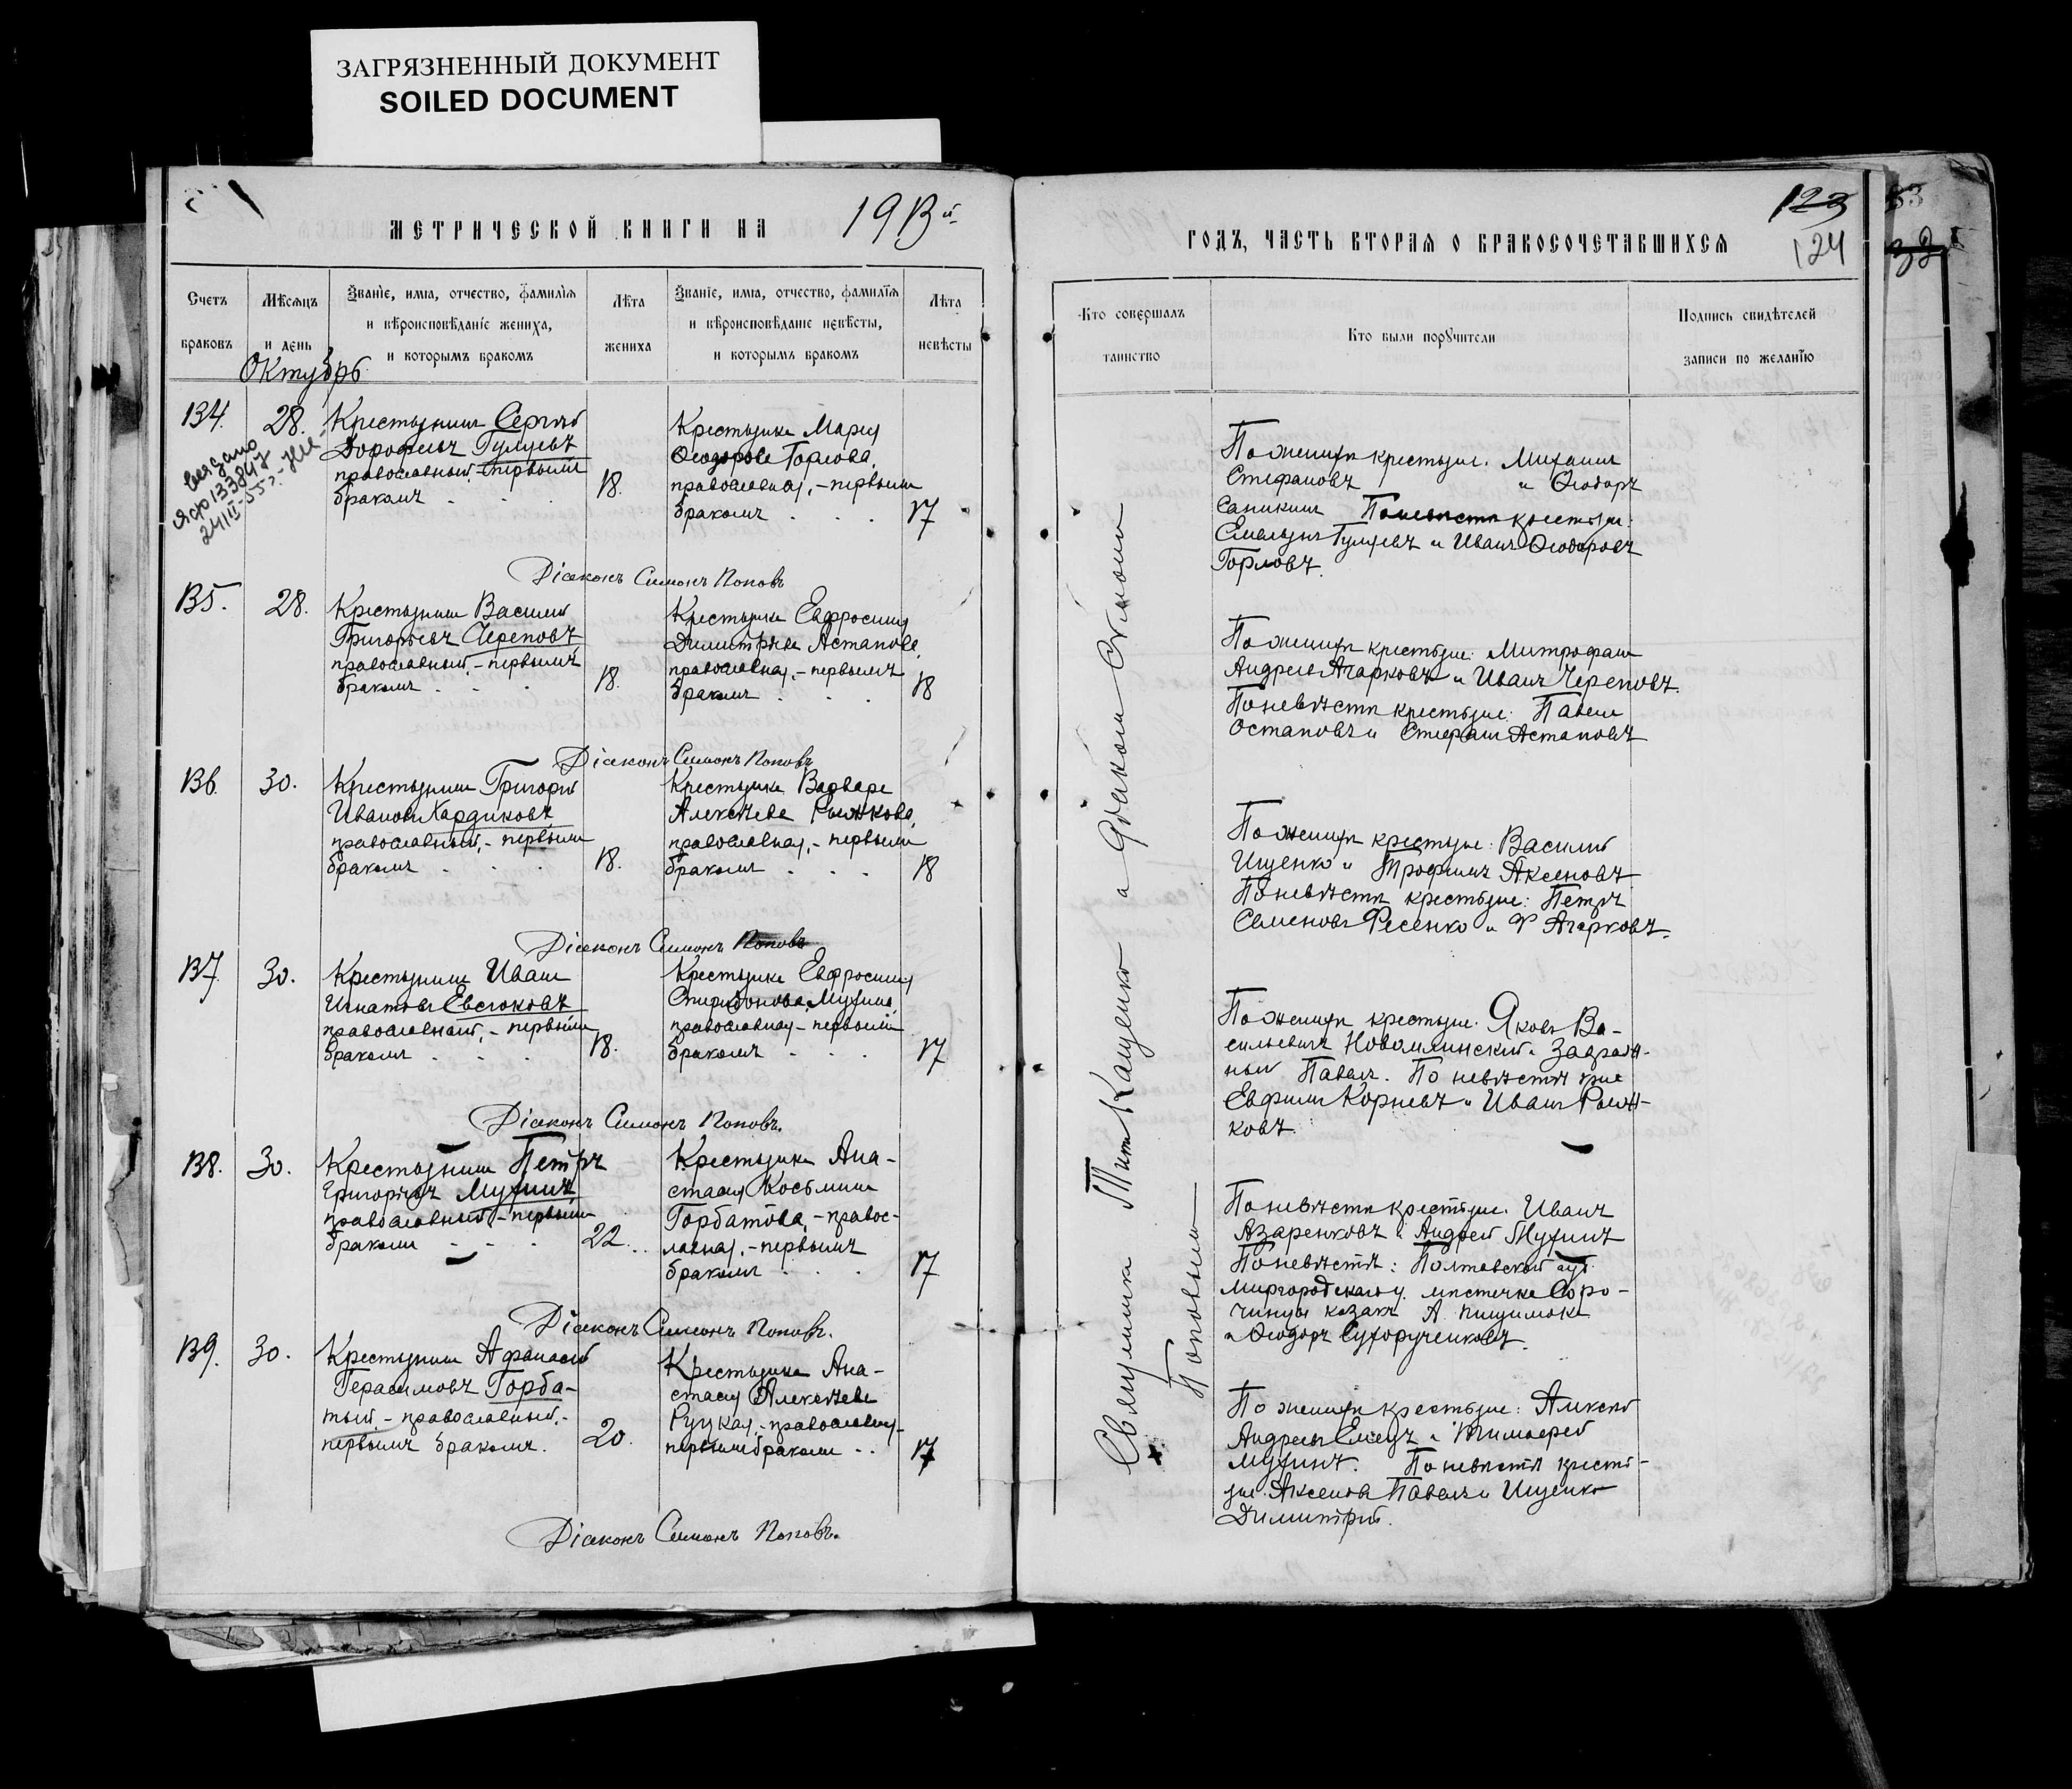 ЗАГРЯЗНЕННЫЙ ДОКУМЕНТ
SOILED DOCUMENT
МЕТРИЧЕСКОЙ КНИГИ НА 1913й
Счетъ браковъ
Мѣсяцъ и день
Званіе, имя, отчество, фамилія и вѣроисповѣданіе жениха, и которымъ бракомъ
Лѣта жениха
Званіе, имя, отчество, фамилія и вѣроисповѣданіе невѣсты, и которымъ бракомъ
Лѣта невѣсты
Октябрь
134.
28.
Крестьянинъ Сергій
Дорофеевъ Гуляевъ
православный, - первымъ
бракомъ
18.
Крестьянка Марія
Ѳеодорова Горлова,
православная, - первымъ
бракомъ
17
Діаконъ Симонъ Поповъ
135.
28.
Крестьянинъ Василій
Григорьевъ Череповъ
православный, - первымъ
бракомъ
18.
Крестьянка Евфросинія
Димитріева Астапова,
православная, - первымъ
бракомъ
18
Діаконъ Симонъ Поповъ
136.
30.
Крестьянинъ Григорій
Ивановъ Хардиковъ
православный, - первымъ
бракомъ
18.
Крестьянка Варвара
Алексѣева Рыжкова,
православная, - первымъ
бракомъ
18
Діаконъ Симонъ Поповъ
137.
30.
Крестьянинъ Иванъ
Игнатовъ
православный, - первымъ
бракомъ
18.
Крестьянка Евфросинія
Спиридонова Мухина,
православная - первымъ
бракомъ
17
Діаконъ Симонъ Поповъ.
138.
30.
Крестьянинъ Петръ
Григорьевъ Мухинъ
православный, - первымъ
бракомъ
22.
Крестьянка Ана-
стасія Косьмина
Горбатова, - правос-
лавная, - первымъ
бракомъ
17
Діаконъ Симонъ Поповъ.
139.
30.
Крестьянинъ Афанасій
Герасимовъ Горба-
тый - православный, -
первымъ бракомъ.
20.
Крестьянка Ана-
стасія Алексѣева
Руцкая, - православная, -
первымъ бракомъ
17
Діаконъ Симонъ Поповъ.
123
124
ГОДЪ, ЧАСТЬ ВТОРАЯ О БРАКОСОЧЕТАВШИХСЯ
Кто совершалъ таинство
Кто были поручители
Подпись свидѣтелей записи по желанію
Священникъ Титъ Кащенко и діаконъ Симонъ
Поповымъ
По женихѣ крестьяне: Михаилъ
Стефановъ и Ѳеодоръ
Саникинъ По невѣстѣ крестьяне:
Емельянъ Гуляевъ и Иванъ Ѳеодоровъ
Горловъ.
По женихѣ крестьяне: Митрофанъ
Андреевъ Агарковъ и Иванъ Череповъ.
По невѣстѣ крестьяне: Павелъ
Остаповъ и Стефанъ Астаповъ
По женихѣ крестьяне: Василій
Ищенко и Трофимъ Аксеновъ
По невѣстѣ крестьяне: Петръ
Семеновъ Фесенко и Ф Агарковъ.
По женихѣ крестьяне: Яковъ Ва-
сильевичъ
Павелъ. По невѣстѣ
Евфимъ Корневъ и Иванъ Рыж-
ковъ.
По невѣстѣ крестьяне: Иванъ
Азаренковъ и Андрей Мухинъ
По невѣстѣ: Полтавской губ.
Миргородскаго у. мѣстечка Соро-
чинцы казакъ А.
и Ѳеодоръ Сухорученковъ.
По женихѣ крестьяне: Алексѣй
Андреевъ и Тимофей
Мухинъ. По невѣстѣ кресть-
яне: Аксеновъ Павелъ и Ищенко
Димитрій.